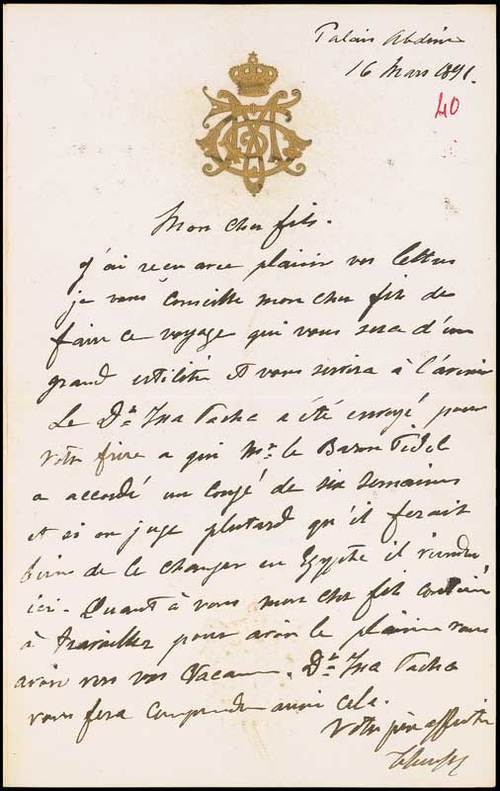 Palais Abdine
16 Mars 1891.
40
Mon cher fils.
J'ai reçu avec plaisir vos lettres
je vous conseille mon cher fils de
faire ce voyage qui vous sera d'un
grand utilité et vous servira à l'avenir
Le Dr. Issa Pacha a été envoyé pour
votre frère a qui Mr. le Baron Fidel
a accordé un congé de six semaines
et si on juge plutard qu'il ferait
bien de le changer en Egypte il viendra
ici. Quant à vous mon cher fils
à travailler pour avoir le plaisir vous
avoir vers vos Vacances. Dr. Issa Pacha
vous fera comprendre aussi cela.
Votre père affectioné